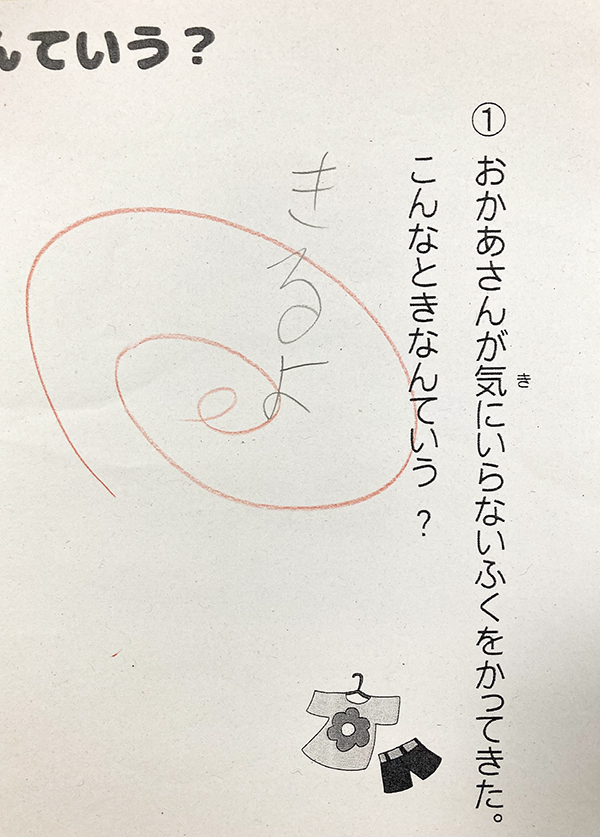 んていう？
① おかあさんが気にいらないふくをかってきた。
き
こんなときなんていう？
きるよ